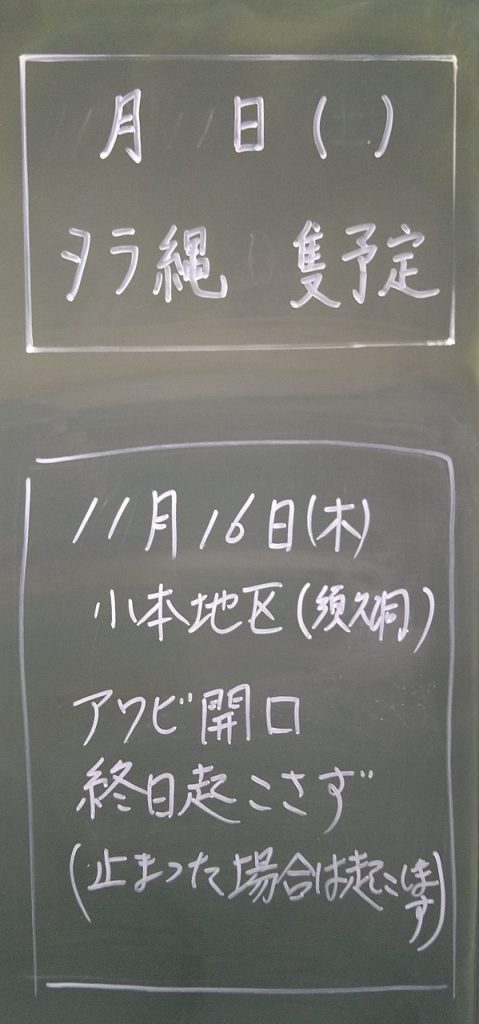 月 日( )
タラ縄 隻予定
11月16日(木)
小本地区(須久洞)
アワビ開口
終日起こさず
(止まった場合は起こします)